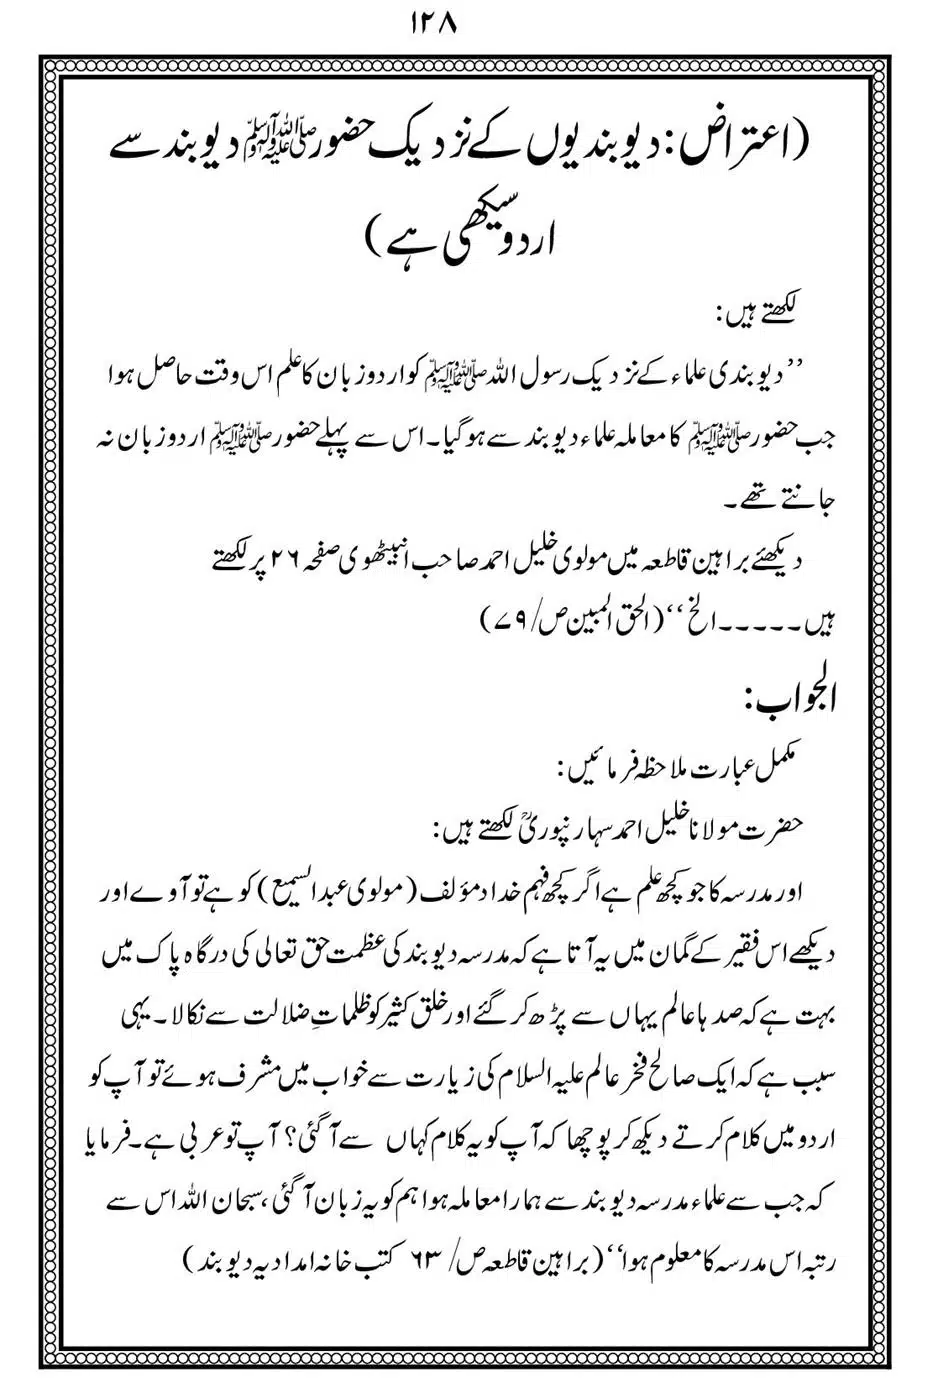 ۱۲۸
(اعتراض: دیوبندیوں کے نزدیک حضور ﷺ دیوبند سے
اردو سیکھی ہے)
لکھتے ہیں:
’’دیوبندی علماء کے نزدیک رسول اللہ ﷺ کو اردو زبان کا علم اس وقت حاصل ہوا
جب حضور ﷺ کا معاملہ علماء دیوبند سے ہوگیا۔ اس سے پہلے حضور ﷺ اردو زبان نہ
جانتے تھے۔
دیکھئے براہین قاطعہ میں مولوی خلیل احمد صاحب انبیٹھوی صفحہ ۲۶ پر لکھتے
ہیں۔۔۔۔۔الخ‘‘ (الحق المبین ص/۷۹)
الجواب:
مکمل عبارت ملاحظہ فرمائیں:
حضرت مولانا خلیل احمد سہارنپوریؒ لکھتے ہیں:
اور مدرسہ کا جو کچھ علم ہے اگر کچھ فہم خداد مؤلف (مولوی عبدالسمیع) کو ہے تو آوے اور
دیکھے اس فقیر کے گمان میں یہ آتا ہے کہ مدرسہ دیوبند کی عظمت حق تعالی کی درگاہ پاک میں
بہت ہے کہ صدہا عالم یہاں سے پڑھ کر گئے اور خلق کثیر کو ظلماتِ ضلالت سے نکالا۔ یہی
سبب ہے کہ ایک صالح فخر عالم علیہ السلام کی زیارت سے خواب میں مشرف ہوئے تو آپ کو
اردو میں کلام کرتے دیکھ کر پوچھا کہ آپ کو یہ کلام کہاں سے آگئی؟ آپ تو عربی ہے۔ فرمایا
کہ جب سے علماء مدرسہ دیوبند سے ہمارا معاملہ ہوا ہم کو یہ زبان آگئی، سبحان اللہ اس سے
رتبہ اس مدرسہ کا معلوم ہوا‘‘ (براہین قاطعہ ص/ ۶۳ کتب خانہ امدادیہ دیوبند)